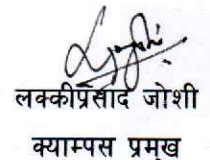 लक्कीप्रसाद जोशी
क्याम्पस प्रमुख